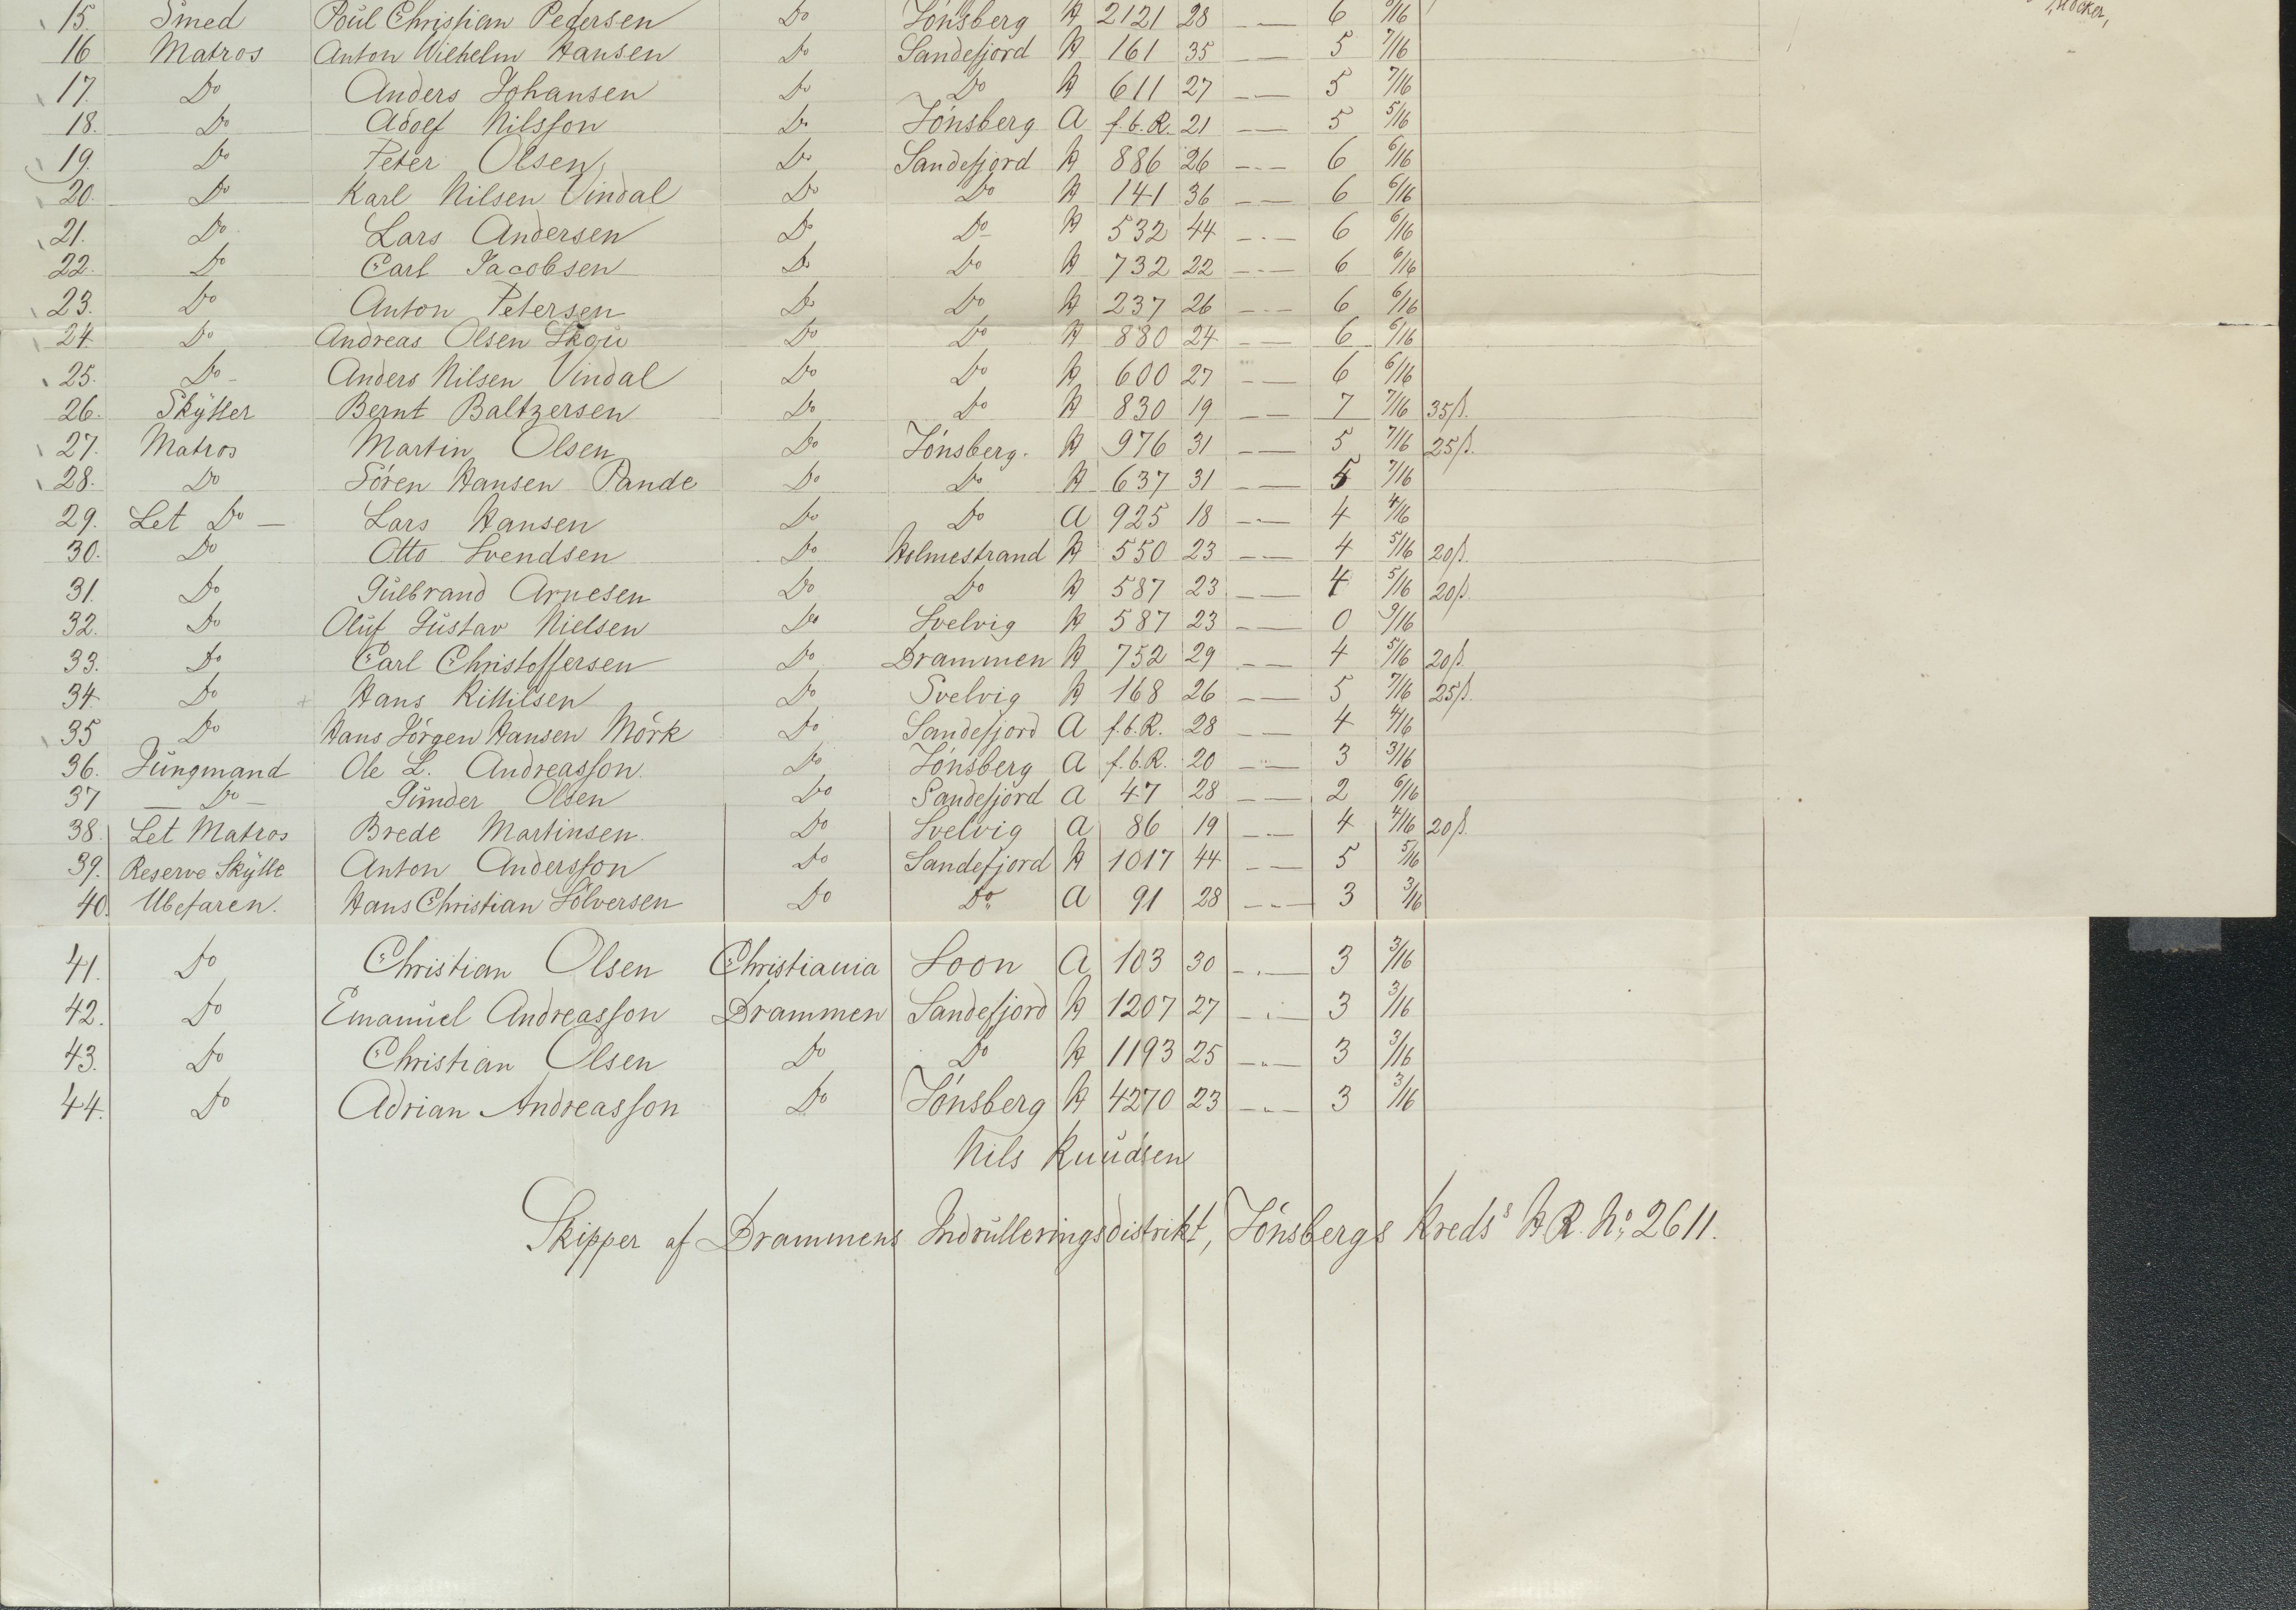 15. Smed Poul Christian Pedersen Do Tönsberg H 2121 28 - — 6 /16
16 Matros Anton Wilhelm Hansen Do Sandefjord H 161 35 - — 5 7/16
17. Do Anders Johansen Do Do H 611 27 - — 5 7/16
18. Do Adolf Nilsson Do Tönsberg A f.b.R. 21 - — 5 5/16
19. Do Peter Olsen Do Sandefjord H 886 26 - — 6 6/16
20. Do Karl Nilsen Vindal Do Do H 141 36 - — 6 6/16
21. Do Lars Andersen Do Do H 532 44 - — 6 6/16
22. Do Carl Jacobsen Do Do H 732 22 - — 6 6/16
23. Do Anton Petersen Do Do H 237 26 - — 6 6/16
24. Do Andreas Olsen Skou Do Do H 880 24 - — 6 6/16
25. Do Anders Nilsen Vindal Do Do H 600 27 - — 6 6/16
26. Skytter Bernt Baltzersen Do Do H 830 19 - — 7 7/16 35ß.
27. Matros Martin Olsen Do Tönsberg. H 976 31 - — 5 7/16 25ß.
28. Do Sören Hansen Pande Do Do H 637 31 - — 5 7/16
29. Let Do — Lars Hansen Do Do A 925 18 - — 4 4/16
30. Do Otto Svendsen Do Holmestrand H 550 23 - — 4 5/16 20ß.
31. Do Gulbrand Arnesen Do Do H 587 23 - — 4 5/16 20ß.
32. Do Oluf Gustav Nielsen Do Svelvig H 587 23 - — 0 9/16
33. Do Carl Christoffersen Do Drammen H 752 29 - — 4 5/16 20ß.
34. Do Hans Kittilsen Do Svelvig H 168 26 - — 5 7/16 25ß.
35 Do Hans Jörgen Hansen Mörk Do Sandefjord A f.b.R. 28 - — 4 4/16
36. Jungmand Ole L. Andreasson Do Tönsberg A f.b.R. 20 - — 3 3/16
37 — Do — Gunder Olsen Do Sandefjord A 47 28 - — 2 6/16
38. Let Matros Brede Martinsen Do Svelvig A 86 19 - — 4 4/16 20ß.
39. Reserve Skytte Anton Andersson Do Sandefjord H 1017 44 - — 5 5/16
40. Ubefaren. Hans Christian Sölversen Do Do A 91 28 - — 3 3/16
41. Do Christian Olsen Christiania Soon A 103 30 - — 3 3/16
42. Do Emanuel Andreasson Drammen Sandefjord H 1207 27 - — 3 3/16
43. Do Christian Olsen Do Do H 1193 25 - — 3 3/16
44. Do Adrian Andreasson Do Tönsberg H 4270 23 - — 3 3/16
Nils Knudsen
Skipper af Drammens Indrulleringsdistrikt, Tönsbergs Kreds's H.R. No 2611.